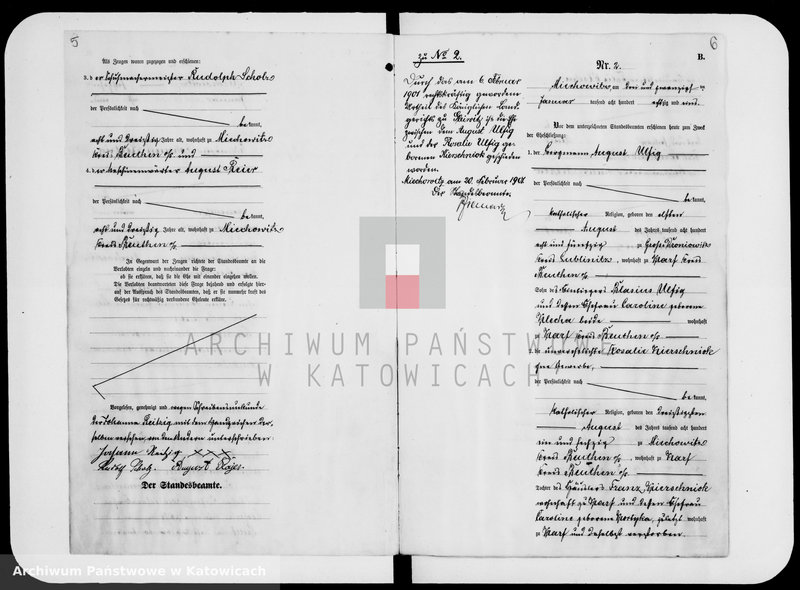 5
Als Zeugen waren zugezogen und erschienen:
3. der Schuhmachermeister Rudolph Scholz
der Persönlichkeit nach
bekannt,
acht und dreißig Jahre alt, wohnhaft zu Miechowitz
Kreis Beuthen o/s. und
4. der Maschinenwärter August
der Persönlichkeit nach
bekannt,
acht und dreißig Jahre alt, wohnhaft zu Miechowitz
Kreis Beuthen o/s.
In Gegenwart der Zeugen richtete der Standesbeamte an die
Verlobten einzeln und nacheinander die Frage:
ob sie erklären, daß sie die Ehe mit einander eingehen wollen.
Die Verlobten beantworteten diese Frage bejahend und erfolgte hier-
auf der Ausspruch des Standesbeamten, daß er sie nunmehr kraft des
Gesetzes für rechtmäßig verbundene Eheleute erkläre.
Vorgelesen, genehmigt und wegen Schreibensunkunde
der Johanna mit dem Handzeichen der-
selben versehen, von den Andern unterschrieben
Johann XXX
August
Der Standesbeamte.
zu No 2.
Durch das am 6. Februar
1901 rechtskräftig gewordene
Urtheil des Königlichen Land
gerichts zu Gleiwitz ist die Ehe
zwischen dem August Ulfig
und der Rosalie Ulfig ge-
borenen Kierschniok geschieden
worden.
Miechowitz am 20. Februar 1901.
Der Standesbeamte.
6
Nr. 2.
B.
Miechowitz, am drei und zwanzigsten
Januar tausend acht hundert achtzig und eins.
Vor dem unterzeichneten Standesbeamten erschienen heute zum Zweck
der Eheschließung:
1. der Bergmann August Ulfig
der Persönlichkeit nach
bekannt,
katholischer Religion, geboren den elften
August des Jahres tausend acht hundert
acht und fünfzig zu Groß
Kreis Lublinitz, wohnhaft zu Karf Kreis
Beuthen o/s.
Sohn des Blasius Ulfig
und dessen Ehefrau Caroline geborene
beide wohnhaft
zu Karf Kreis Beuthen o/s.
2. die unverehelichte Rosalie Kierschniok
ohne Gewerbe,
der Persönlichkeit nach
bekannt,
katholischer Religion, geboren den dreißigsten
August des Jahres tausend acht hundert
ein und sechzig zu Miechowitz
Kreis Beuthen o/s., wohnhaft zu Karf
Kreis Beuthen o/s.
Tochter des Häuslers Franz Kierschniok
wohnhaft zu Karf und dessen Ehefrau
Caroline geborene zuletzt wohnhaft
zu Karf und daselbst verstorben.
ARCHIWUM PAŃSTWOWE
W KATOWICACH
Archiwum Państwowe w Katowicach